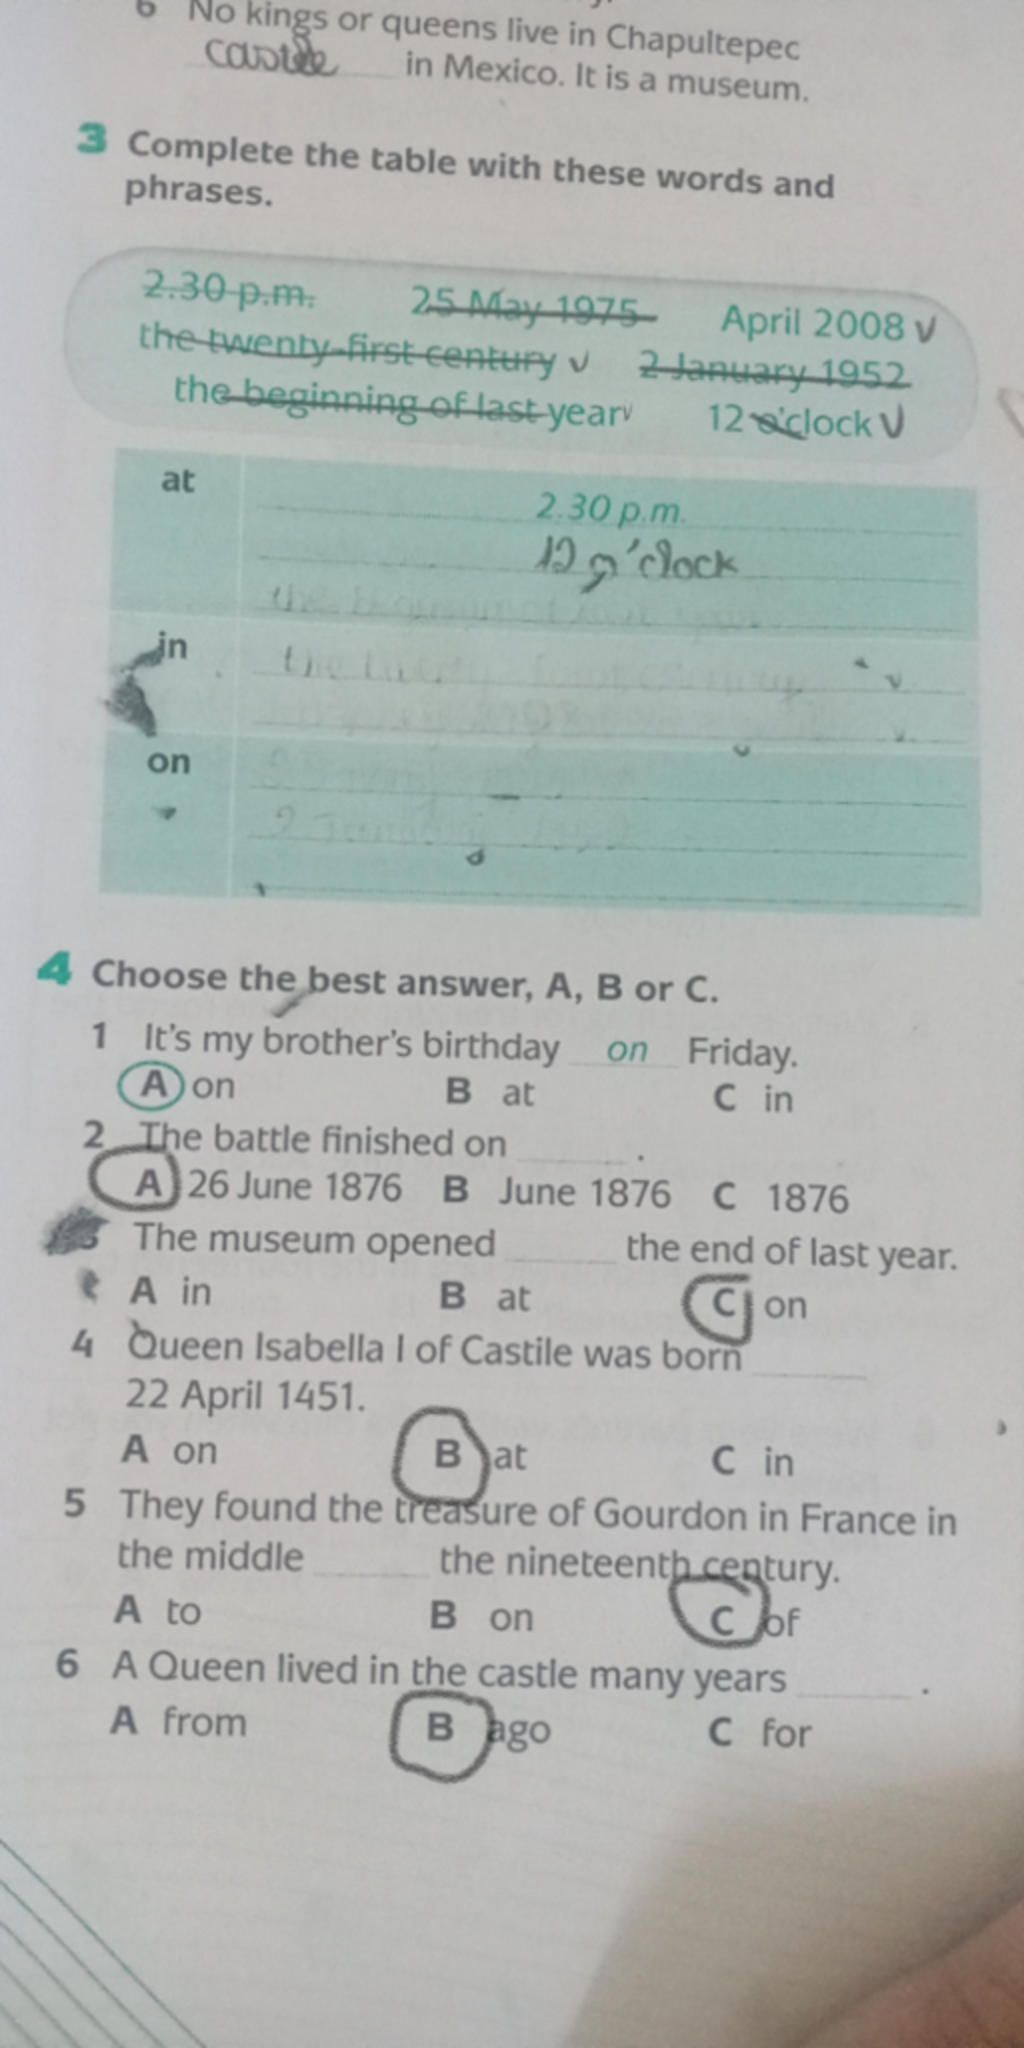 6 No kings or queens live in Chapultepec
castle in Mexico. It is a museum.
3 Complete the table with these words and
phrases.
2.30 p.m. 25 May 1975 April 2008 ✓
the twenty-first century ✓ 2 January 1952
the beginning of last year ✓ 12 o'clock ✓
at
2.30 p.m.
12 o'clock
the beginning of last year
in
the twenty first century
on
2 January
4 Choose the best answer, A, B or C.
1 It's my brother's birthday on Friday.
A on B at C in
2 The battle finished on ______ .
A 26 June 1876 B June 1876 C 1876
3 The museum opened ______ the end of last year.
A in B at C on
4 Queen Isabella I of Castile was born ______
22 April 1451.
A on B at C in
5 They found the treasure of Gourdon in France in
the middle ______ the nineteenth century.
A to B on C of
6 A Queen lived in the castle many years ______ .
A from B ago C for